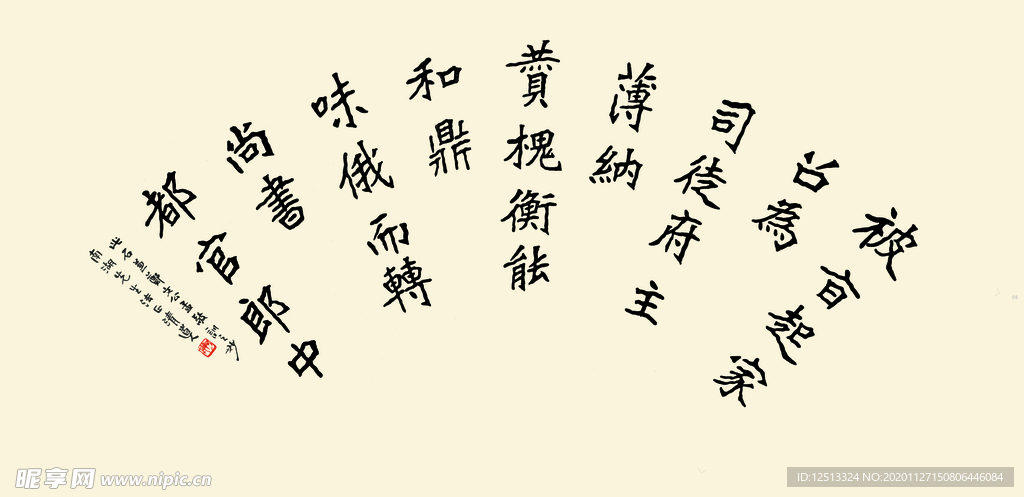 被旨起家
召為
司徒府主
薄納
賛槐衡能
和鼎
味俄而轉
尚書
都官郎中
南湖先生法正清道人
昵享网 www.nipic.cn
ID:12513324 NO:20201127150806446084